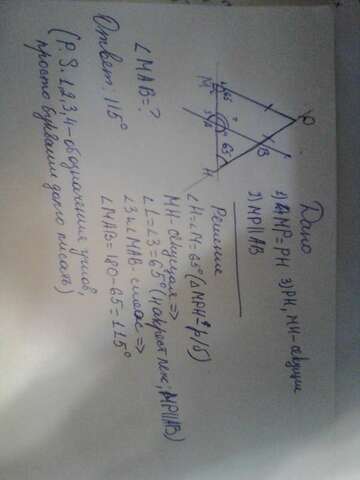 Дано
1) MP=PH 3) PH, MH-секущие
2) MP||AB
P
M
B
H
65
65°
?
∠MAB=?
Решение
∠H=∠M=65° (△MPH-р/б)
MH-секущая =>
∠1=∠3=65° (накрест леж; MP||AB)
∠3 и ∠MAB-смеж =>
∠MAB=180-65=115°
Ответ: 115°
(P.S. 1,2,3,4-обозначения углов,
просто буквами долго писать)